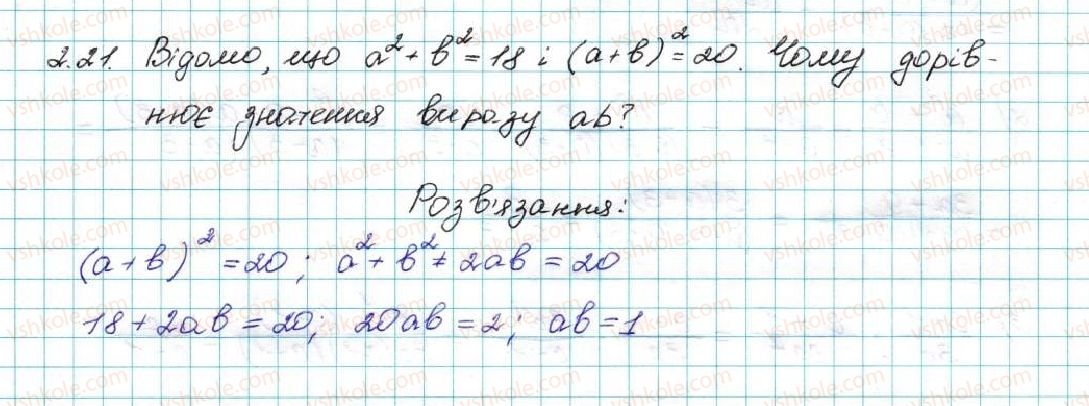 2.21. Відомо, що a² + b² = 18 і (a + b)² = 20. Чому дорів-
нює значення виразу ab?
Розв'язання:
(a + b)² = 20; a² + b² + 2ab = 20
18 + 2ab = 20; 20ab = 2; ab = 1